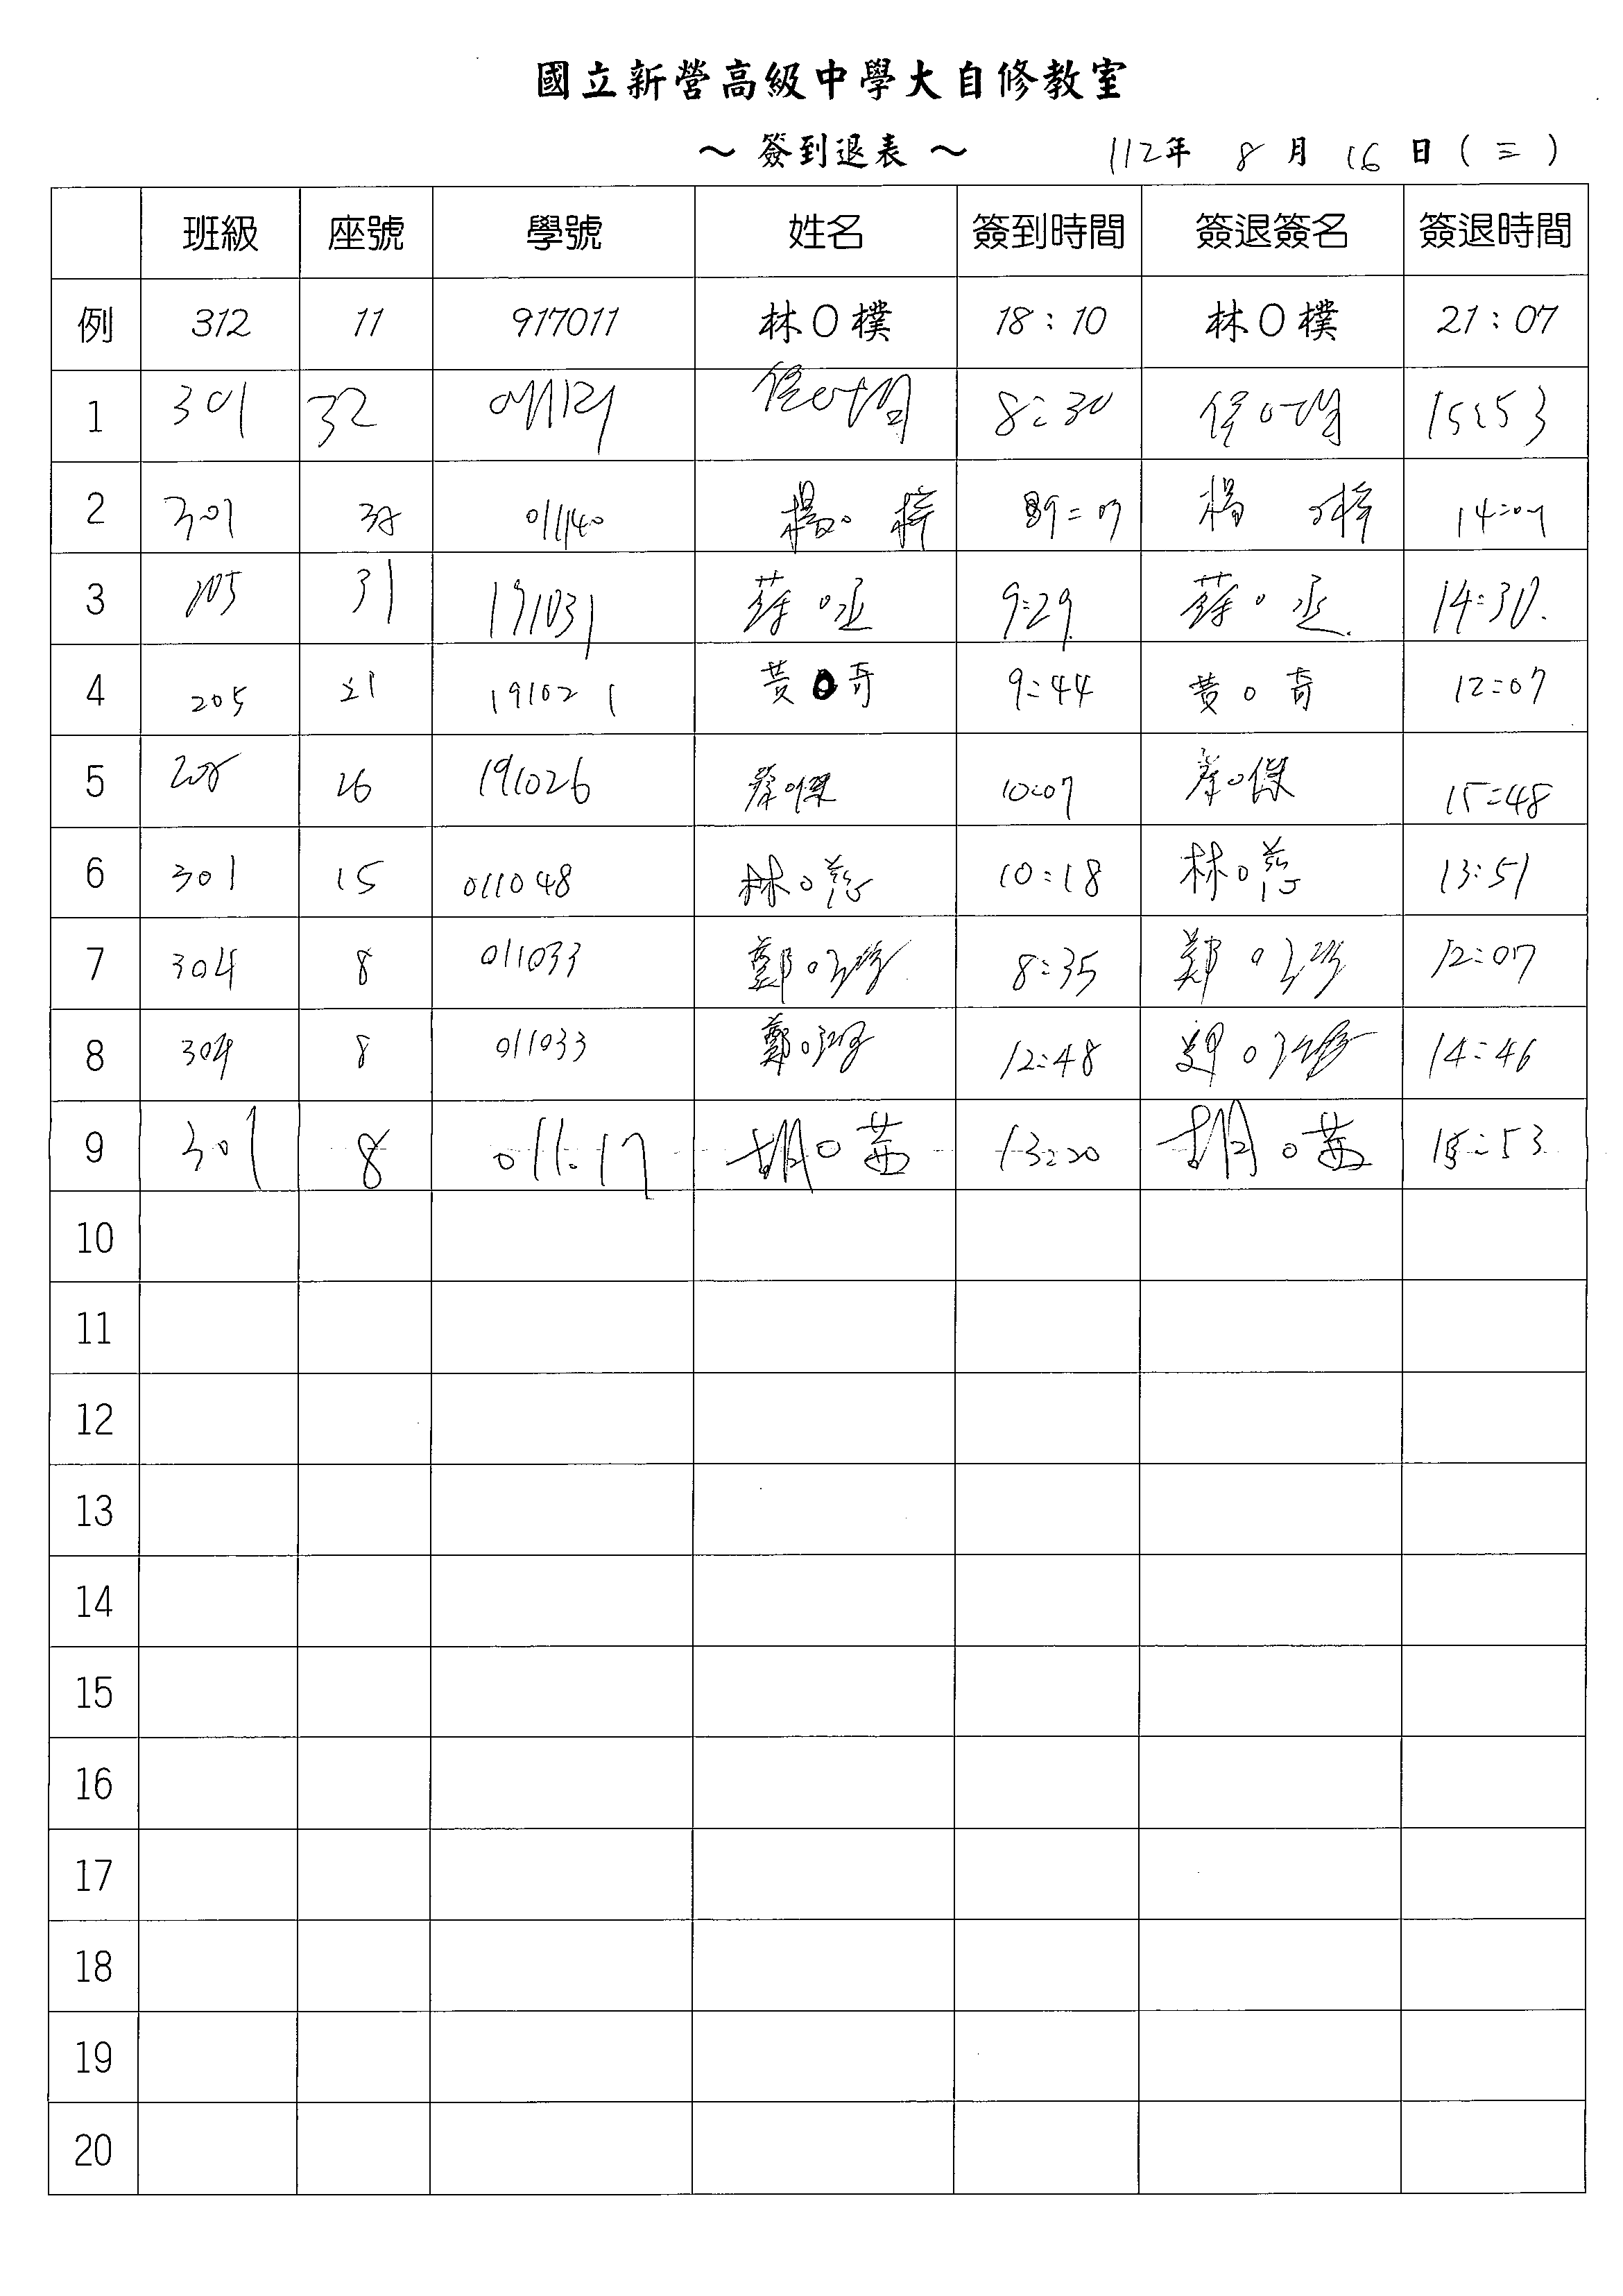 國立新營高級中學大自修教室
～ 簽到退表 ～ 112年 8月 16日 (三)
班級 座號 學號 姓名 簽到時間 簽退簽名 簽退時間
例 312 11 917011 林O樸 18:10 林O樸 21:07
1 301 32 8:30 15:53
2 301 38 011140 楊O梓 09:07 楊O梓 14:07
3 205 31 191031 蔡O丞 9:29 蔡O丞 14:30
4 205 21 191021 黃O奇 9:44 黃O奇 12:07
5 205 26 191026 蔡O傑 10:07 蔡O傑 15:48
6 301 15 011048 林O慈 10:18 林O慈 13:51
7 304 8 011033 鄭O 8:35 鄭O 12:07
8 304 8 011033 鄭O 12:48 鄭O 14:46
9 301 8 胡O茜 13:20 胡O茜 15:53
10
11
12
13
14
15
16
17
18
19
20